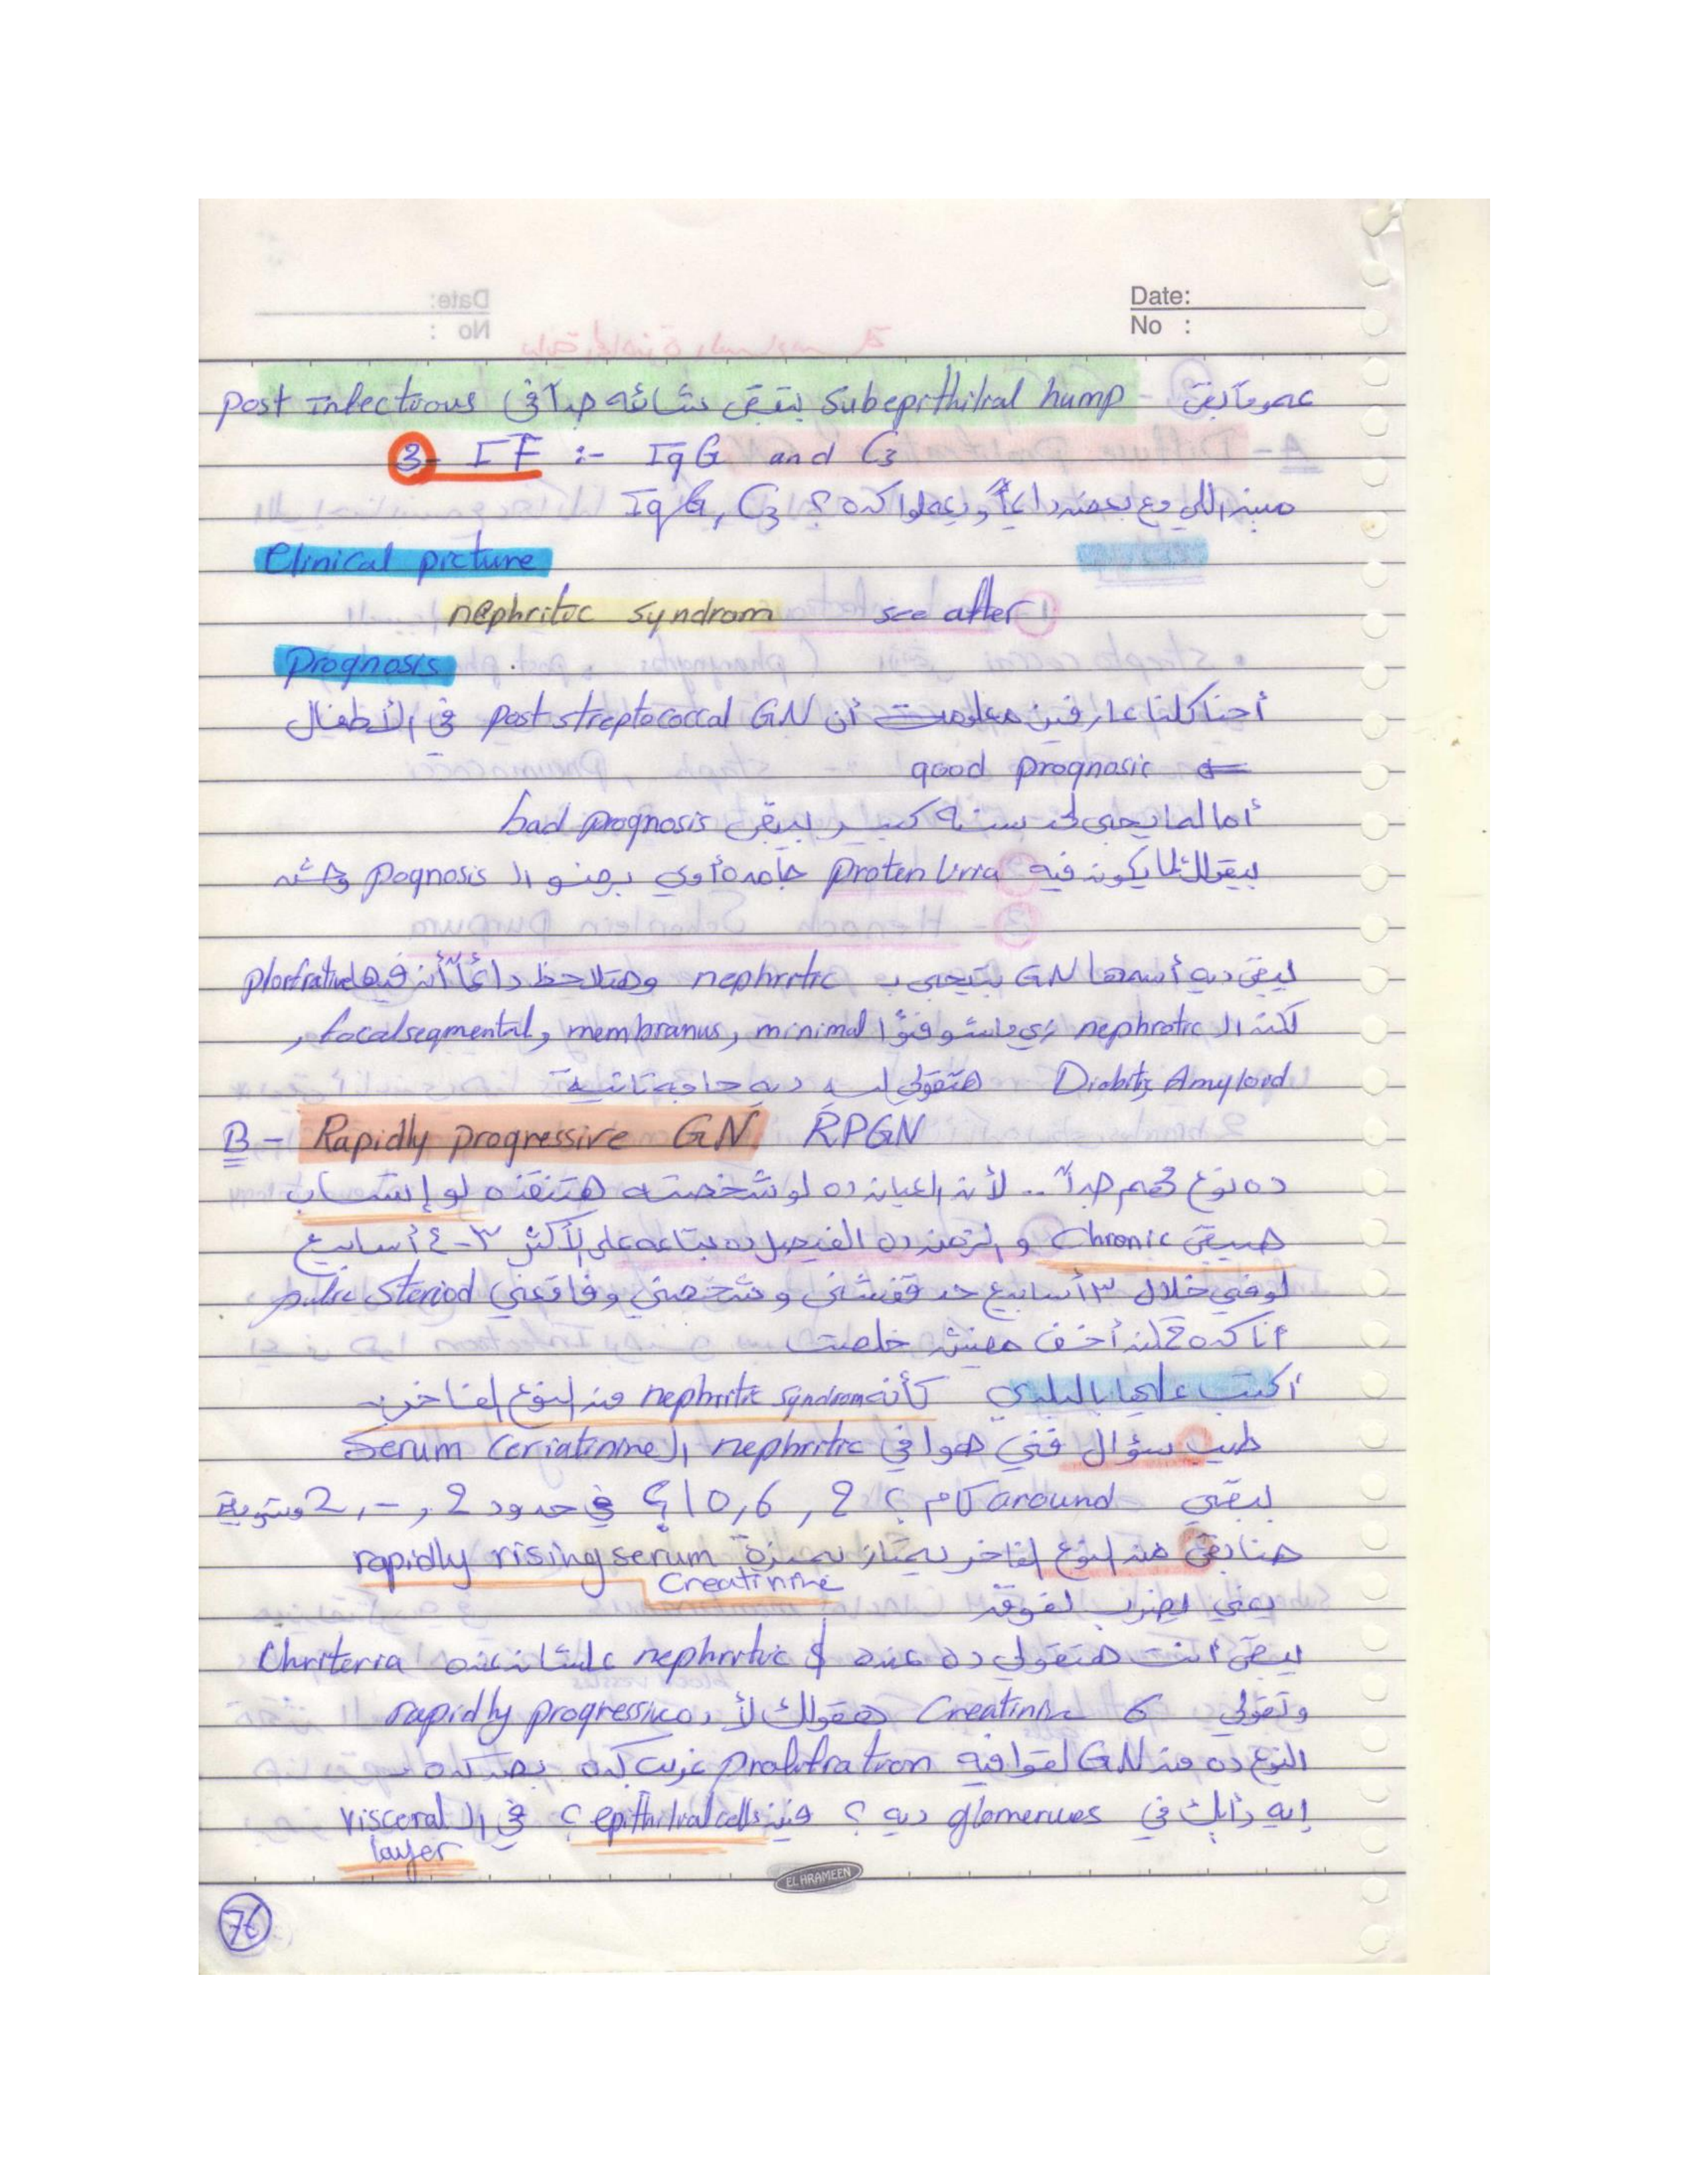 Date:
No :
عموماً بقى - subepithilial hump بتبقى شائعه جداً في post infectious
3- IF :- IgG and C3
مين اللي مع بعض دايماً وبيعملوا كده ؟ IgG, C3
Clinical picture
nephritic syndrom see after
Prognosis
أحنا كلنا عارفين أن post streptococcal GN في الأطفال
good prognosic
أما لما يجي لحد سنه كبير بيبقى bad prognosis
بيقولك لما يكون فيه proten Urra جامده أوي برضو الـ pognosis وحشه
يبقى ديه أسمها GN بتيجي بـ nephritic وهتلاحظ دائماً أن فيها plorfrative
لكن الـ nephrotic زي ما شوفنا minimal, membranus, focal segmental,
Diabitic, Amyloid هتقولي ديه حاجه تانية
B- Rapidly progressive GN RPGN
ده نوع مهم جداً .. لأن العيان ده لو شخصته هتنقذه لو إتساب
هيبقى Chronic و الزمن ده الفيصل ده بتاعه على الأكثر ٣-٤ أسابيع
لو في خلال ٣ أسابيع حد قفشني و شخصني و pulse steriod
أنا كده أخف مفيش خلصت
أكتب عليها بالبلدي كأنه nephritic syndrom من النوع الفاخر
طيب سؤال فني هوا في nephritic الـ Serum Ceriatinine
يبقى around كام ؟ 2 , 6 , 10 ؟ في حدود 2 , - , 2 وشوية
هنا بقى من النوع الفاخر يمتاز بميزة rapidly rising serum
Creatinine
يعني يضرب لفوق
يبقى أنت هتقولي ده عنده nephritic $ علشان عنده Chriterra
وتقولي 6 Creatinin هقولك لأ ده rapidly progressive
النوع ده من GN لقوا فيه prolifration غريب كده
إيه رأيك في glomerues ديه ؟ فين epithitial cells ؟ في الـ visceral
layer
EL HRAMEEN
76